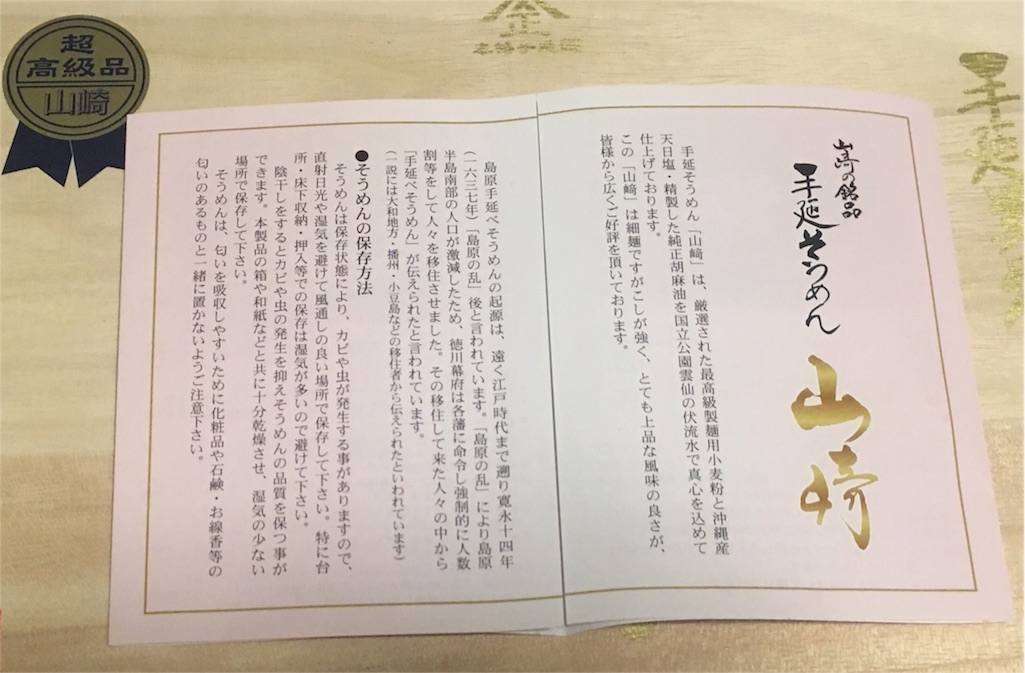 超
高級品
山崎
金
手延
山﨑の銘品
手延そうめん
山﨑
手延そうめん「山﨑」は、厳選された最高級製麺用小麦粉と沖縄産
天日塩・精製した純正胡麻油を国立公園雲仙の伏流水で真心を込めて
仕上げております。
この「山﨑」は細麺ですがこしが強く、とても上品な風味の良さが、
皆様から広くご好評を頂いております。
島原手延べそうめんの起源は、遠く江戸時代まで遡り寛永十四年
(一六三七年)「島原の乱」後と言われています。「島原の乱」により島原
半島南部の人口が激減したため、徳川幕府は各藩に命令し強制的に人数
割等をして人々を移住させました。その移住して来た人々の中から
「手延べそうめん」が伝えられたと言われています。
(一説には大和地方・播州・小豆島などの移住者から伝えられたといわれています)
●そうめんの保存方法
そうめんは保存状態により、カビや虫が発生する事がありますので、
直射日光や湿気を避けて風通しの良い場所で保存して下さい。特に台
所・床下収納・押入等での保存は湿気が多いので避けて下さい。
陰干しをするとカビや虫の発生を抑えそうめんの品質を保つ事が
できます。本製品の箱や和紙などと共に十分乾燥させ、湿気の少ない
場所で保存して下さい。
そうめんは、匂いを吸収しやすいために化粧品や石鹸・お線香等の
匂いのあるものと一緒に置かないようご注意下さい。